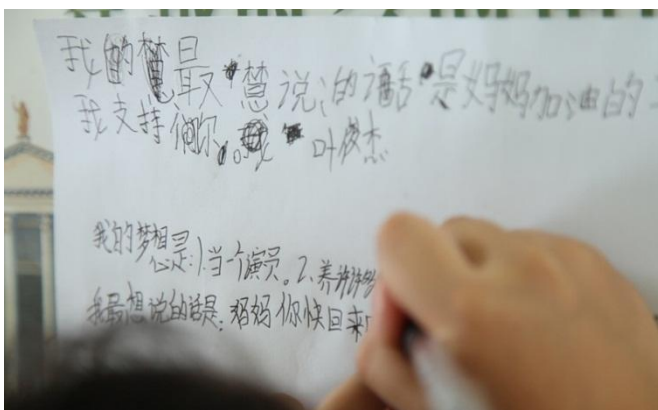 我的 最 说的话是妈妈加油的
我支持你。 叶俊杰
我的梦想是:1.当个演员。2.养许许
我最想说的话是:妈妈你快回来